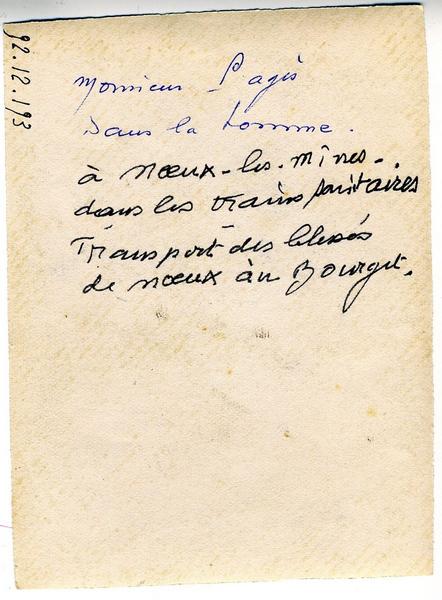 92.12.193
Monsieur Pagès
dans la Somme.
à Nœux-les-Mines.
dans les trains sanitaires
Transport des blessés
de Nœux au Bourget.